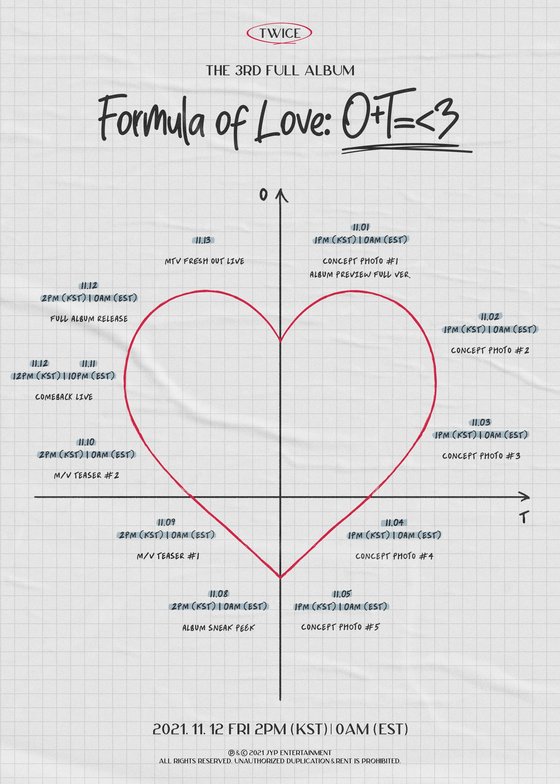 TWICE
THE 3RD FULL ALBUM
Formula of Love: O+T=<3
O
11.01
1PM (KST) | 0AM (EST)
CONCEPT PHOTO #1
ALBUM PREVIEW FULL VER.
11.02
1PM (KST) | 0AM (EST)
CONCEPT PHOTO #2
11.03
1PM (KST) | 0AM (EST)
CONCEPT PHOTO #3
T
11.04
1PM (KST) | 0AM (EST)
CONCEPT PHOTO #4
11.05
1PM (KST) | 0AM (EST)
CONCEPT PHOTO #5
11.08
2PM (KST) | 0AM (EST)
ALBUM SNEAK PEEK
11.09
2PM (KST) | 0AM (EST)
M/V TEASER #1
11.10
2PM (KST) | 0AM (EST)
M/V TEASER #2
11.12 11.11
12PM (KST) | 10PM (EST)
COMEBACK LIVE
11.12
2PM (KST) | 0AM (EST)
FULL ALBUM RELEASE
11.13
MTV FRESH OUT LIVE
2021. 11. 12 FRI 2PM (KST) | 0AM (EST)
Ⓟ & Ⓒ 2021 JYP ENTERTAINMENT
ALL RIGHTS RESERVED. UNAUTHORIZED DUPLICATION & RENT IS PROHIBITED.